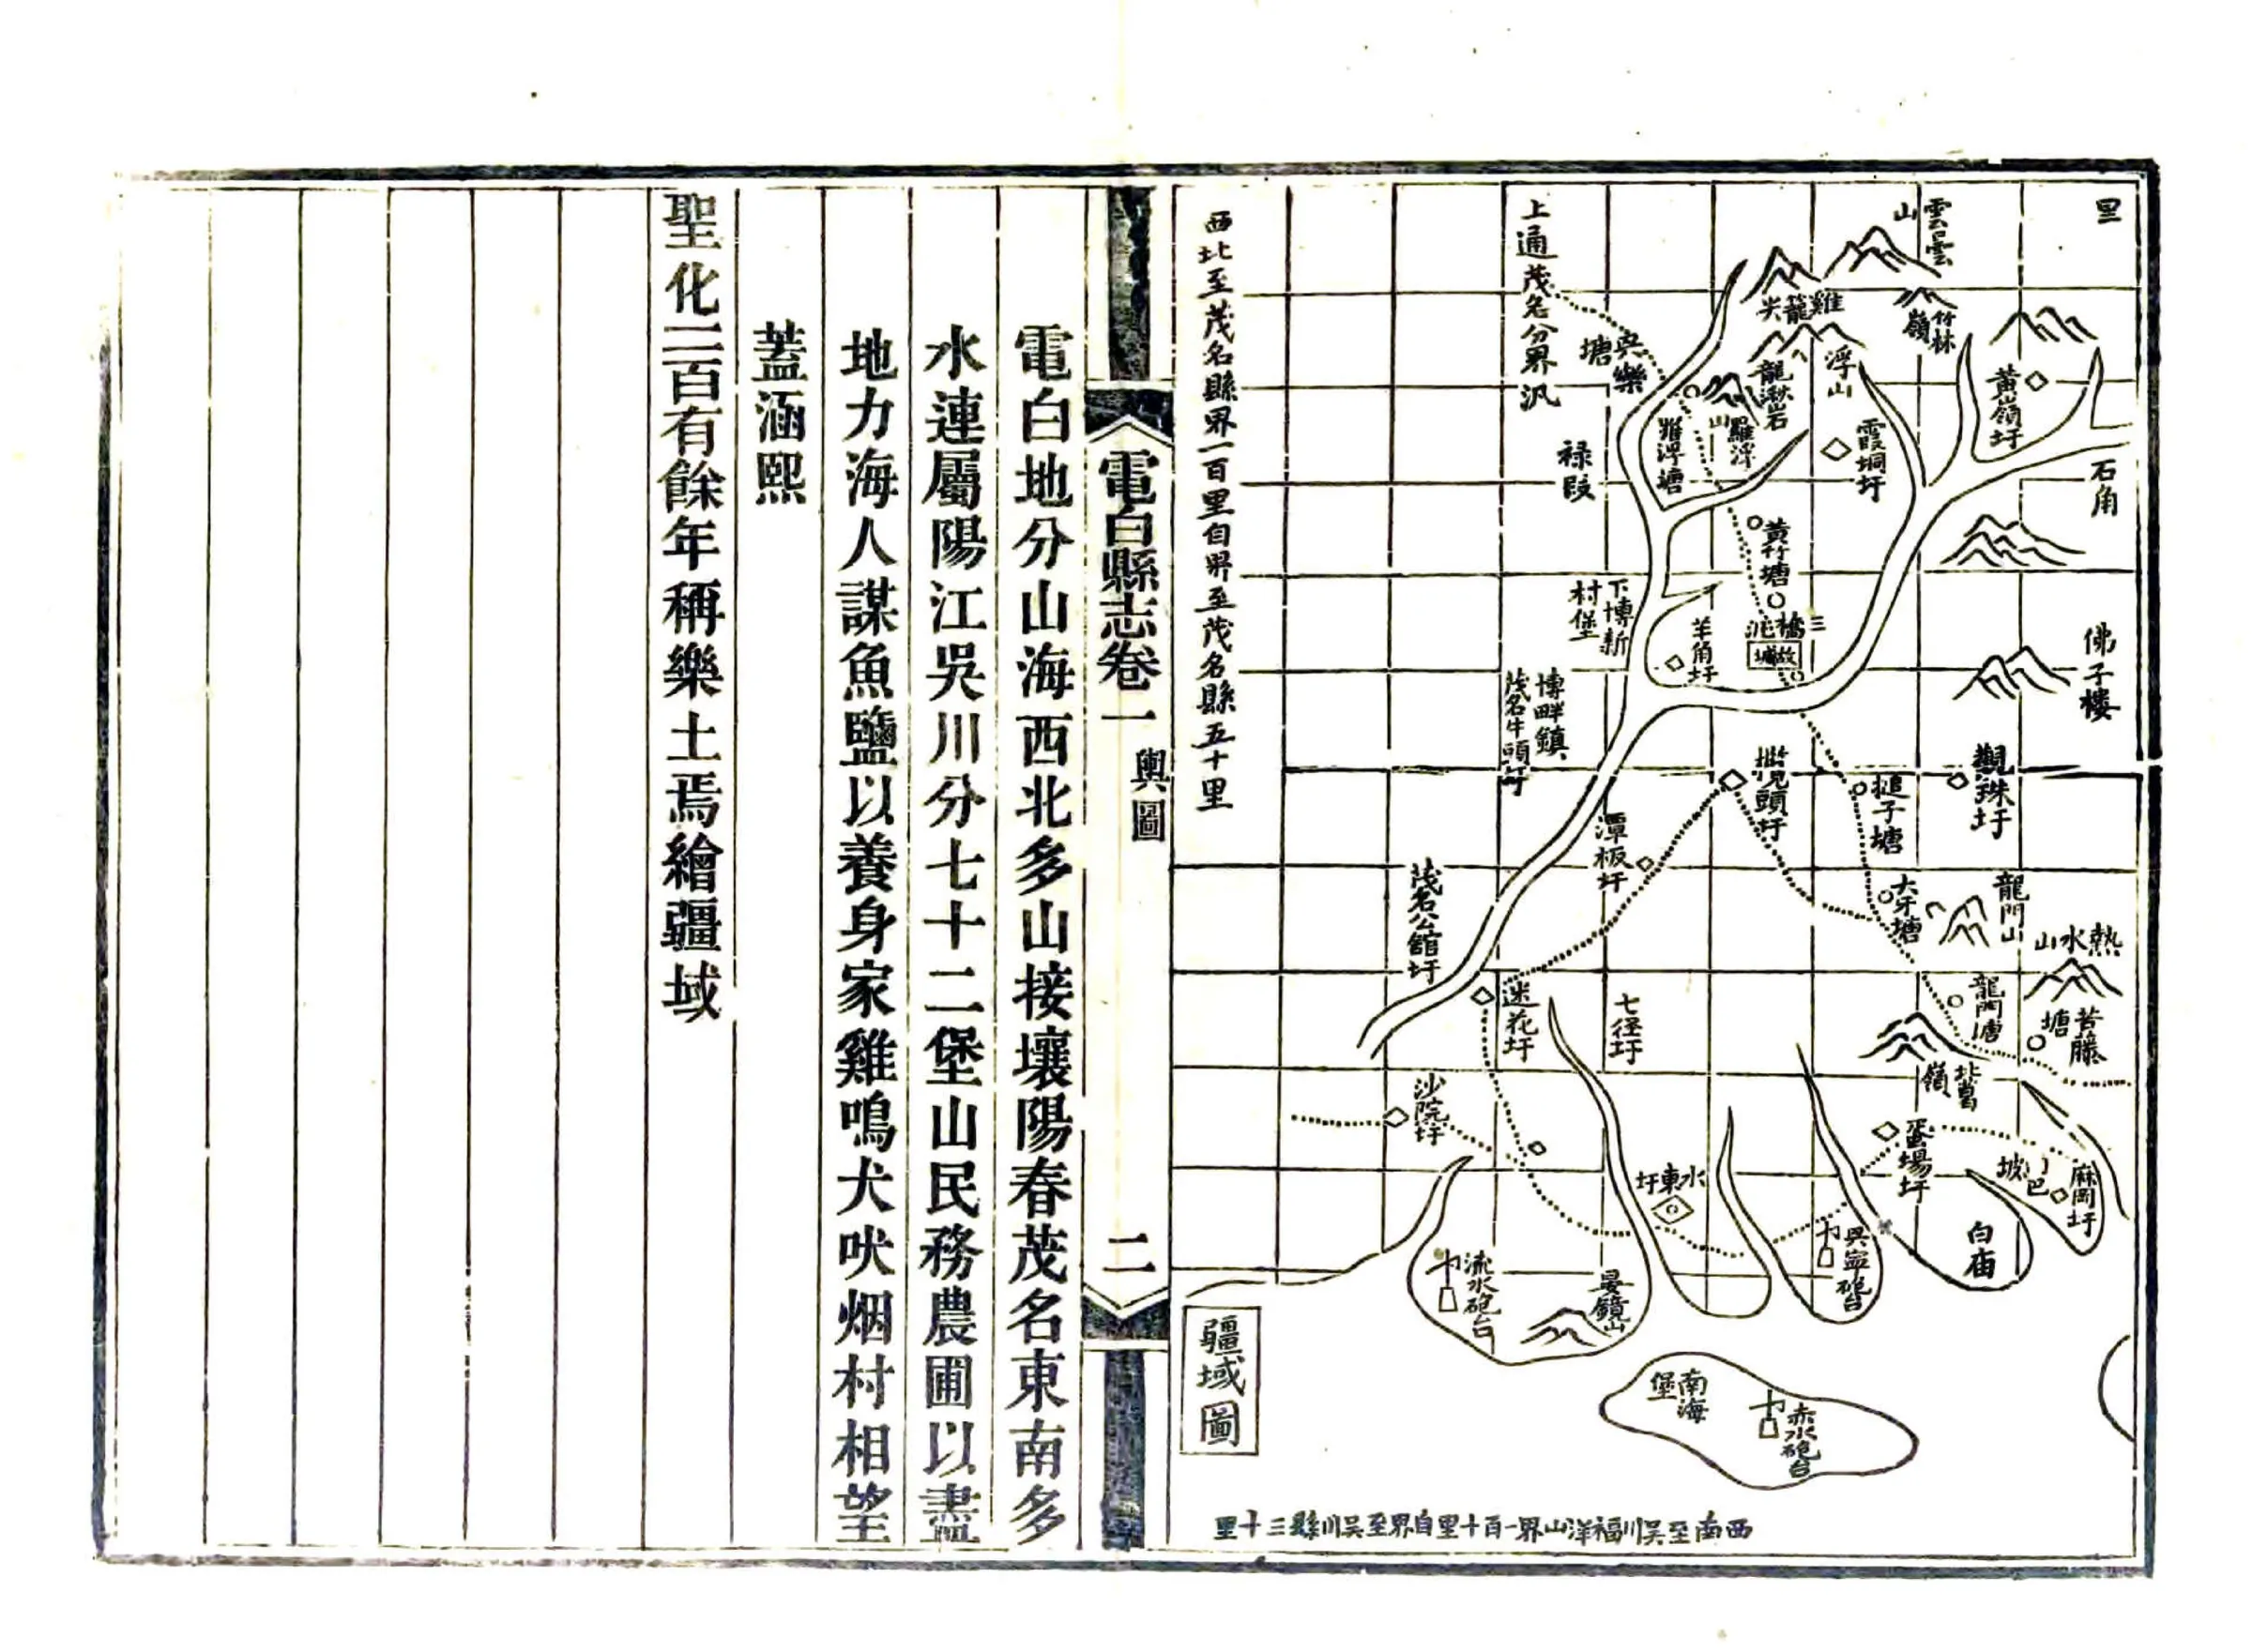 里
石角
佛子樓
雲雲山
竹林嶺
黃嶺圩
雞籠尖
浮山
龍湫岩
霞垌圩
羅浮山
黃竹塘
三橋
故城
羊角圩
觀珠圩
搥子塘
大牙塘
龍門山
熱水山
龍門塘
苦藤塘
蛋場圩
麻岡圩
白庙
興寧砲台
水東圩
晏鏡山
流水砲台
南海堡
赤水砲台
七逕圩
潭板圩
迷花圩
沙院圩
茂名公舘圩
博畔鎮
下博新村堡
祿段
上通茂名分界汛
西北至茂名縣界一百里自界至茂名縣五十里
西南至吳川福洋山界一百十里自界至吳川縣三十里
疆域圖
電白縣志卷一
輿圖
二
電白地分山海西北多山接壤陽春茂名東南多
水連屬陽江吳川分七十二堡山民務農圃以盡
地力海人謀魚鹽以養身家雞鳴犬吠烟村相望
蓋涵熙
聖化二百有餘年稱樂土焉繪疆域